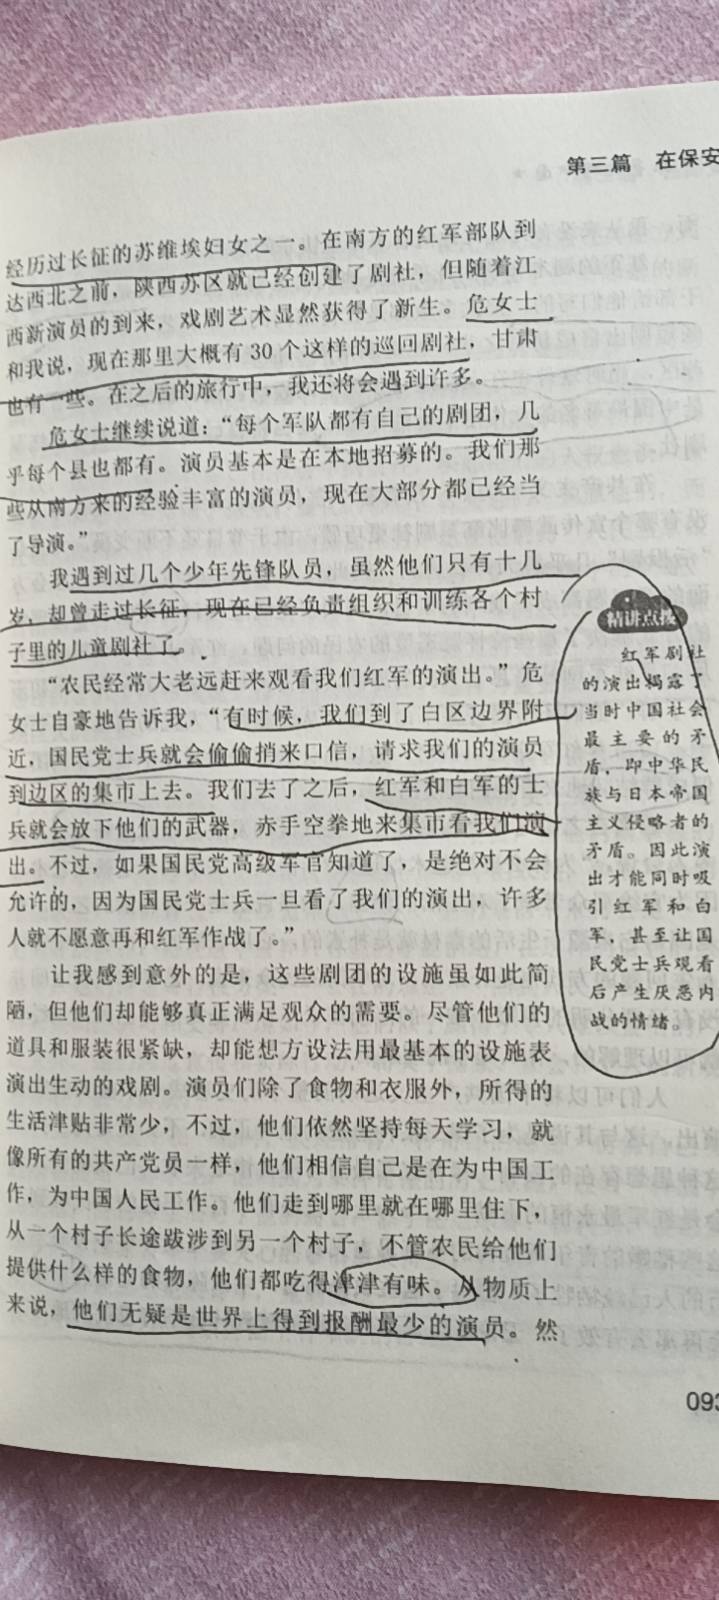 第三篇　在保安
经历过长征的苏维埃妇女之一。在南方的红军部队到
达西北之前，陕西苏区就已经创建了剧社，但随着江
西新演员的到来，戏剧艺术显然获得了新生。危女士
和我说，现在那里大概有30个这样的巡回剧社，甘肃
也有一些。在之后的旅行中，我还将会遇到许多。
危女士继续说道：“每个军队都有自己的剧团，几
乎每个县也都有。演员基本是在本地招募的。我们那
些从南方来的经验丰富的演员，现在大部分都已经当
了导演。”
我遇到过几个少年先锋队员，虽然他们只有十几
岁，却曾走过长征，现在已经负责组织和训练各个村
子里的儿童剧社了。
“农民经常大老远赶来观看我们红军的演出。”危
女士自豪地告诉我，“有时候，我们到了白区边界附
近，国民党士兵就会偷偷捎来口信，请求我们的演员
到边区的集市上去。我们去了之后，红军和白军的士
兵就会放下他们的武器，赤手空拳地来集市看我们演
出。不过，如果国民党高级军官知道了，是绝对不会
允许的，因为国民党士兵一旦看了我们的演出，许多
人就不愿意再和红军作战了。”
让我感到意外的是，这些剧团的设施虽如此简
陋，但他们却能够真正满足观众的需要。尽管他们的
道具和服装很紧缺，却能想方设法用最基本的设施表
演出生动的戏剧。演员们除了食物和衣服外，所得的
生活津贴非常少，不过，他们依然坚持每天学习，就
像所有的共产党员一样，他们相信自己是在为中国工
作，为中国人民工作。他们走到哪里就在哪里住下，
从一个村子长途跋涉到另一个村子，不管农民给他们
提供什么样的食物，他们都吃得津津有味。从物质上
来说，他们无疑是世界上得到报酬最少的演员。然
精讲点拨
红军剧社
的演出揭露了
当时中国社会
最主要的矛
盾，即中华民
族与日本帝国
主义侵略者的
矛盾。因此演
出才能同时吸
引红军和白
军，甚至让国
民党士兵观看
后产生厌恶内
战的情绪。
093